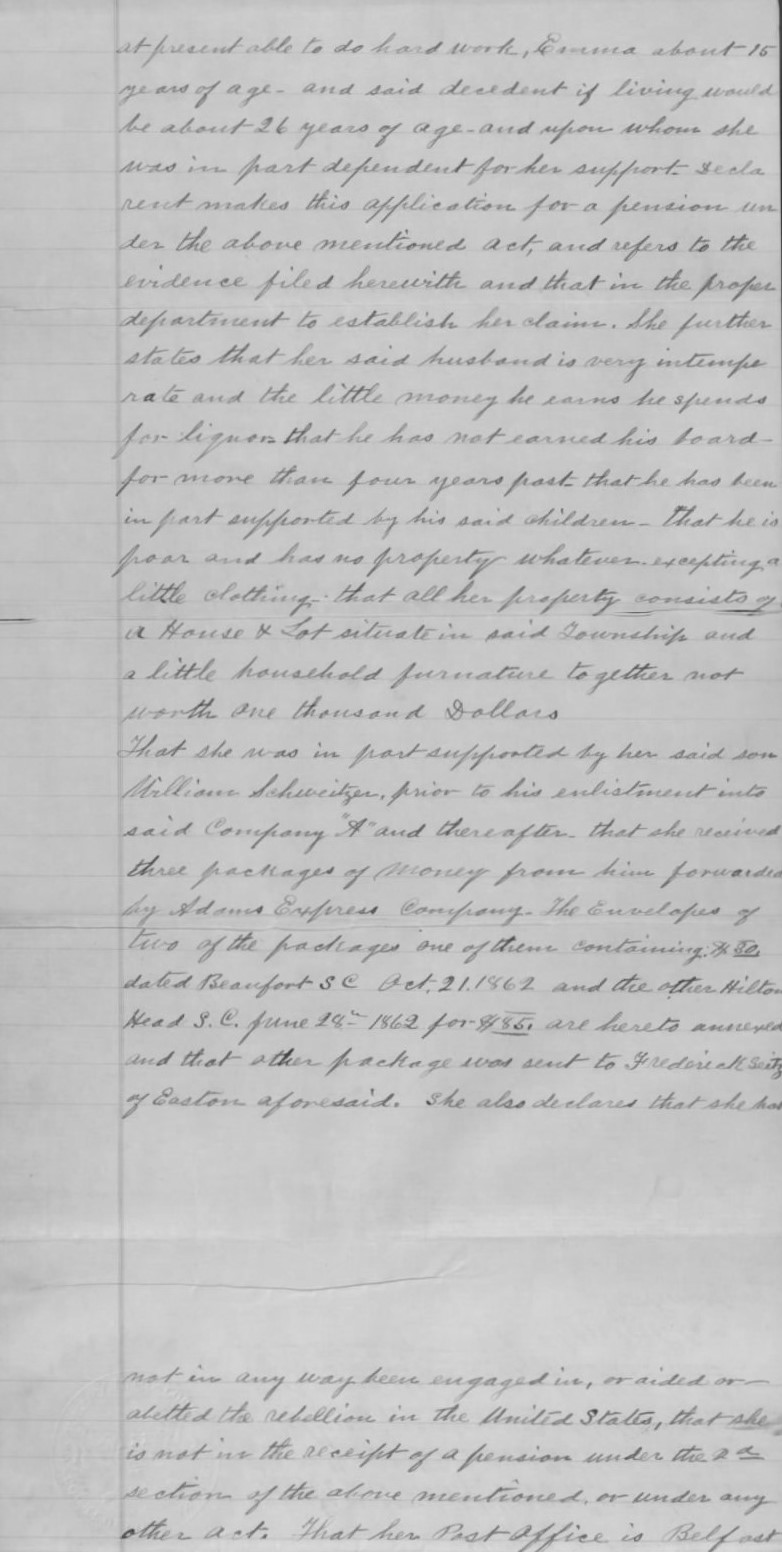 at present able to do hard work, Emma about 15
years of age - and said decedent if living would
be about 26 years of age - and upon whom she
was in part dependent for her support - Decla
rent makes this application for a pension un
der the above mentioned act, and refers to the
evidence filed herewith and that in the proper
department to establish her claim. She further
states that her said husband is very intempe
rate and the little money he earns he spends
for liquor - that he has not earned his board -
for more than four years past - that he has been
in part supported by his said children - that he is
poor and has no property whatever excepting a
little clothing - that all her property consists of
a House & Lot situate in said Township and
a little household furnature together not
worth one thousand Dollars
That she was in part supported by her said son
William Schweitzer, prior to his enlistment into
said Company "A" and thereafter - that she received
three packages of money from him forwarded
by Adams Express Company - The Envelopes of
two of the packages one of them containing $50.
dated Beaufort S C Oct. 21. 1862 and the other Hilton
Head S. C. June 28th 1862 for $85. are hereto annexed
and that other package was sent to Frederick Seitz
of Easton aforesaid. She also declares that she has
not in any way been engaged in, or aided or -
abetted the rebellion in the United States, that she
is not in the receipt of a pension under the 2d
section of the above mentioned, or under any
other act. That her Post Office is Belfast